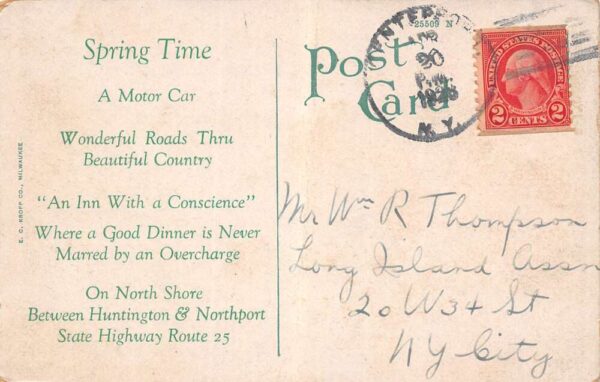 Spring Time
A Motor Car
Wonderful Roads Thru
Beautiful Country
"An Inn With a Conscience"
Where a Good Dinner is Never
Marred by an Overcharge
On North Shore
Between Huntington & Northport
State Highway Route 25
E. C. KROPP CO., MILWAUKEE
25509 N
Post
Card
CENTERPORT
30
P.M.
N.Y.
UNITED STATES POSTAGE
2 CENTS 2
Mr Wm R Thompson
Long Island Assn
20 W 34 St
NY City